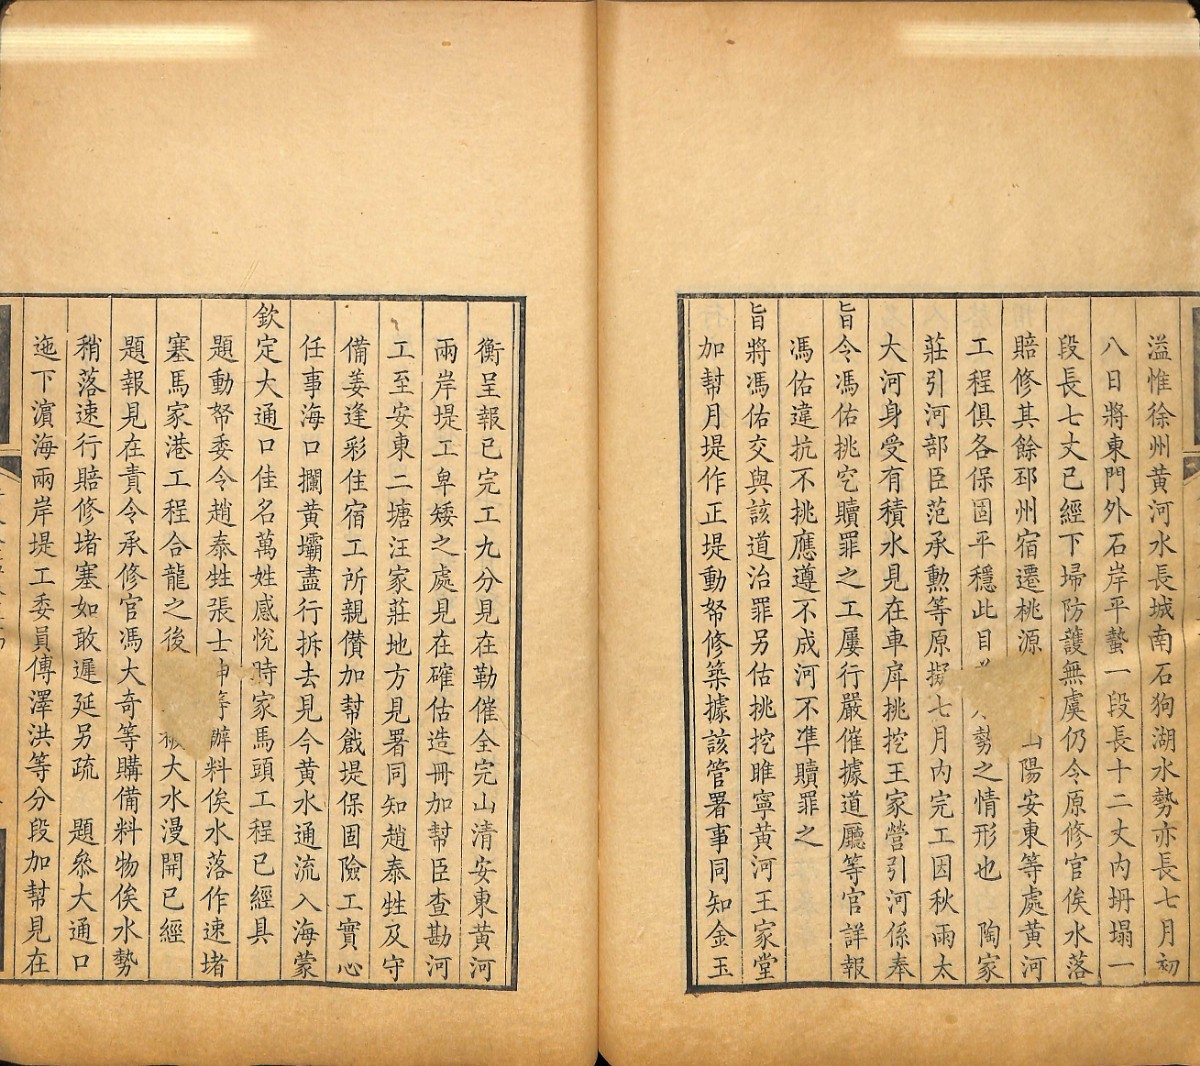 溢惟徐州黃河水長城南石狗湖水勢亦長七月初
八日將東門外石岸平蟄一段長十二丈內坍塌一
段長七丈已經下埽防護無虞仍令原修官俟水落
賠修其餘邳州宿遷桃源山陽安東等處黃河
工程俱各保固平穩此目水勢之情形也　陶家
莊引河部臣范承勲等原擬七月內完工因秋雨太
大河身受有積水見在車戽挑挖王家營引河係奉
旨令馮佑挑穵贖罪之工屢行嚴催據道廳等官詳報
馮佑違抗不挑應遵不成河不准贖罪之
旨將馮佑交與該道治罪另估挑挖睢寧黃河王家堂
加幫月堤作正堤動帑修築據該管署事同知金玉
衡呈報已完工九分見在勒催全完山清安東黃河
兩岸堤工卑矮之處見在確估造冊加幫臣查勘河
工至安東二塘汪家莊地方見署同知趙泰甡及守
備姜逢彩住宿工所親儧加幫戧堤保固險工實心
任事海口攔黃壩盡行拆去見今黃水通流入海蒙
欽定大通口佳名萬姓感悅時家馬頭工程已經具
題動帑委令趙泰甡張士等辦料俟水落作速堵
塞馬家港工程合龍之後被大水漫開已經
題報見在責令承修官馮大奇等購備料物俟水勢
稍落速行賠修堵塞如敢遲延另疏　題叅大通口
迤下濵海兩岸堤工委員傅澤洪等分段加幫見在